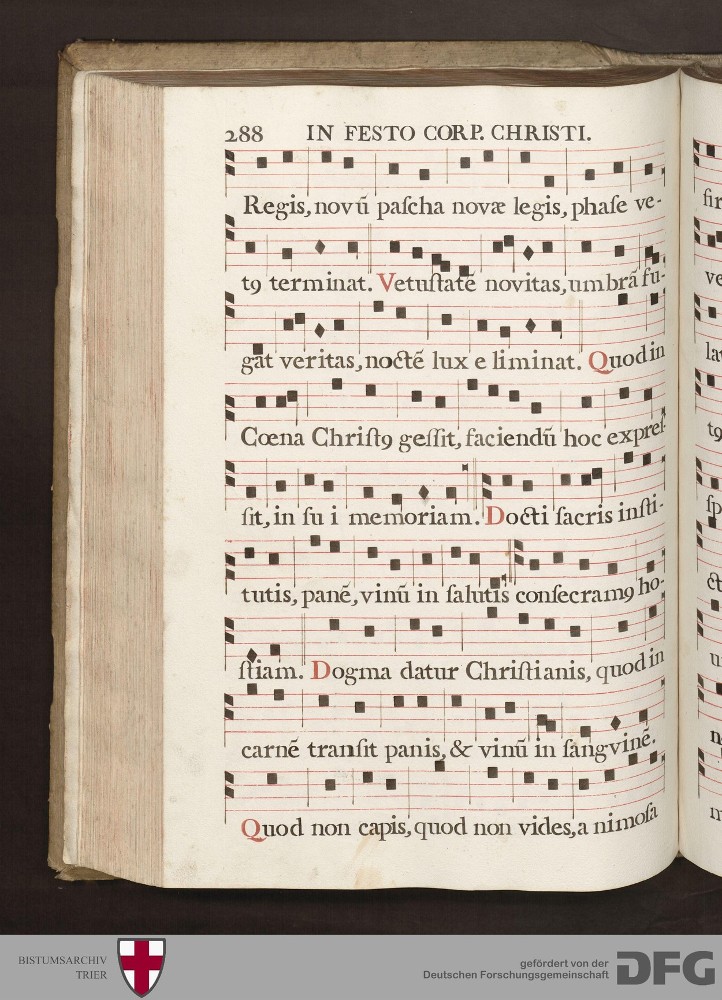 288 IN FESTO CORP. CHRISTI.
Regis, novũ paſcha novæ legis, phaſe ve-
tꝰ terminat. Vetuſtatẽ novitas, umbrã fu-
gat veritas, noctẽ lux e liminat. Quod in
Cœna Chriſtꝰ geſſit, faciendũ hoc expreſ-
ſit, in ſu i memoriam. Docti ſacris inſti-
tutis, panẽ, vinũ in ſalutis conſecramꝰ ho-
ſtiam. Dogma datur Chriſtianis, quod in
carnẽ tranſit panis, & vinũ in ſangvinẽ.
Quod non capis, quod non vides, a nimoſa
ſir
ve
la
tꝰ
ſp
ct
u
n
BISTUMSARCHIV
TRIER
gefördert von der
Deutschen Forschungsgemeinschaft
DFG